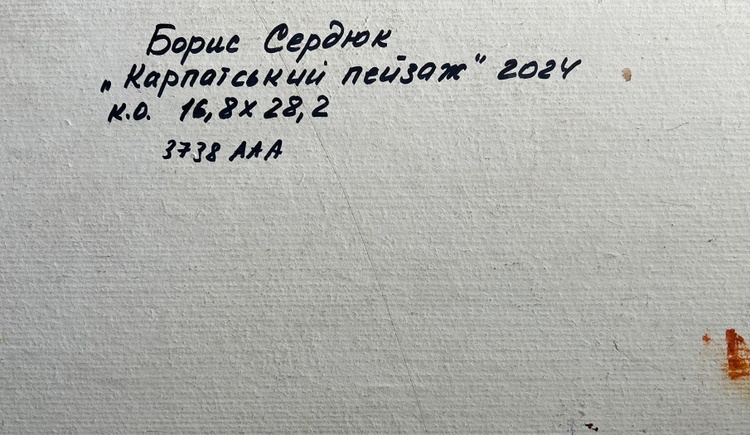 Борис Сердюк
„Карпатський пейзаж" 2024
к.о. 16,8 х 28,2
3738 ААА